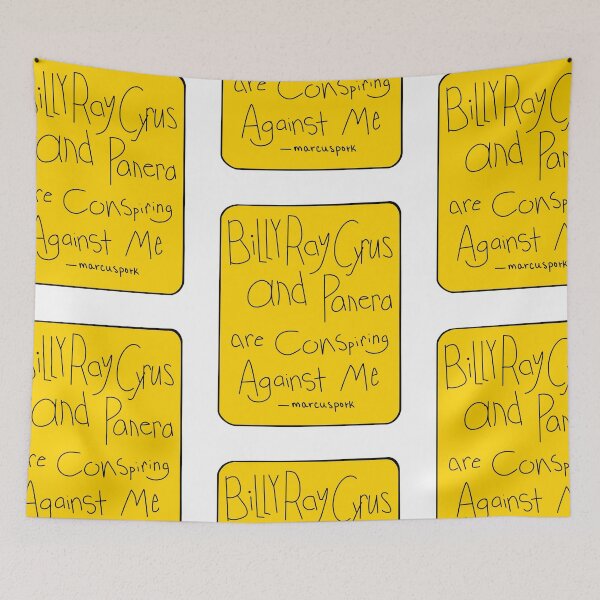 iLLY Ray Cyrus
and Panera
are Conspiring
Against Me
—marcuspork
are Conspiring
Against Me
—marcuspork
BiLLY Ray Cy
and Paner
are Consp
Against M
—marcuspork
BiLLY Ray Cyrus
and Panera
are Conspiring
Against Me
—marcuspork
iLLY Ray Cyrus
and Panera
re Conspiring
Against Me
BiLLY Ray Cy
and Paner
are Consp
Against Me
BiLLY Ray Cyrus